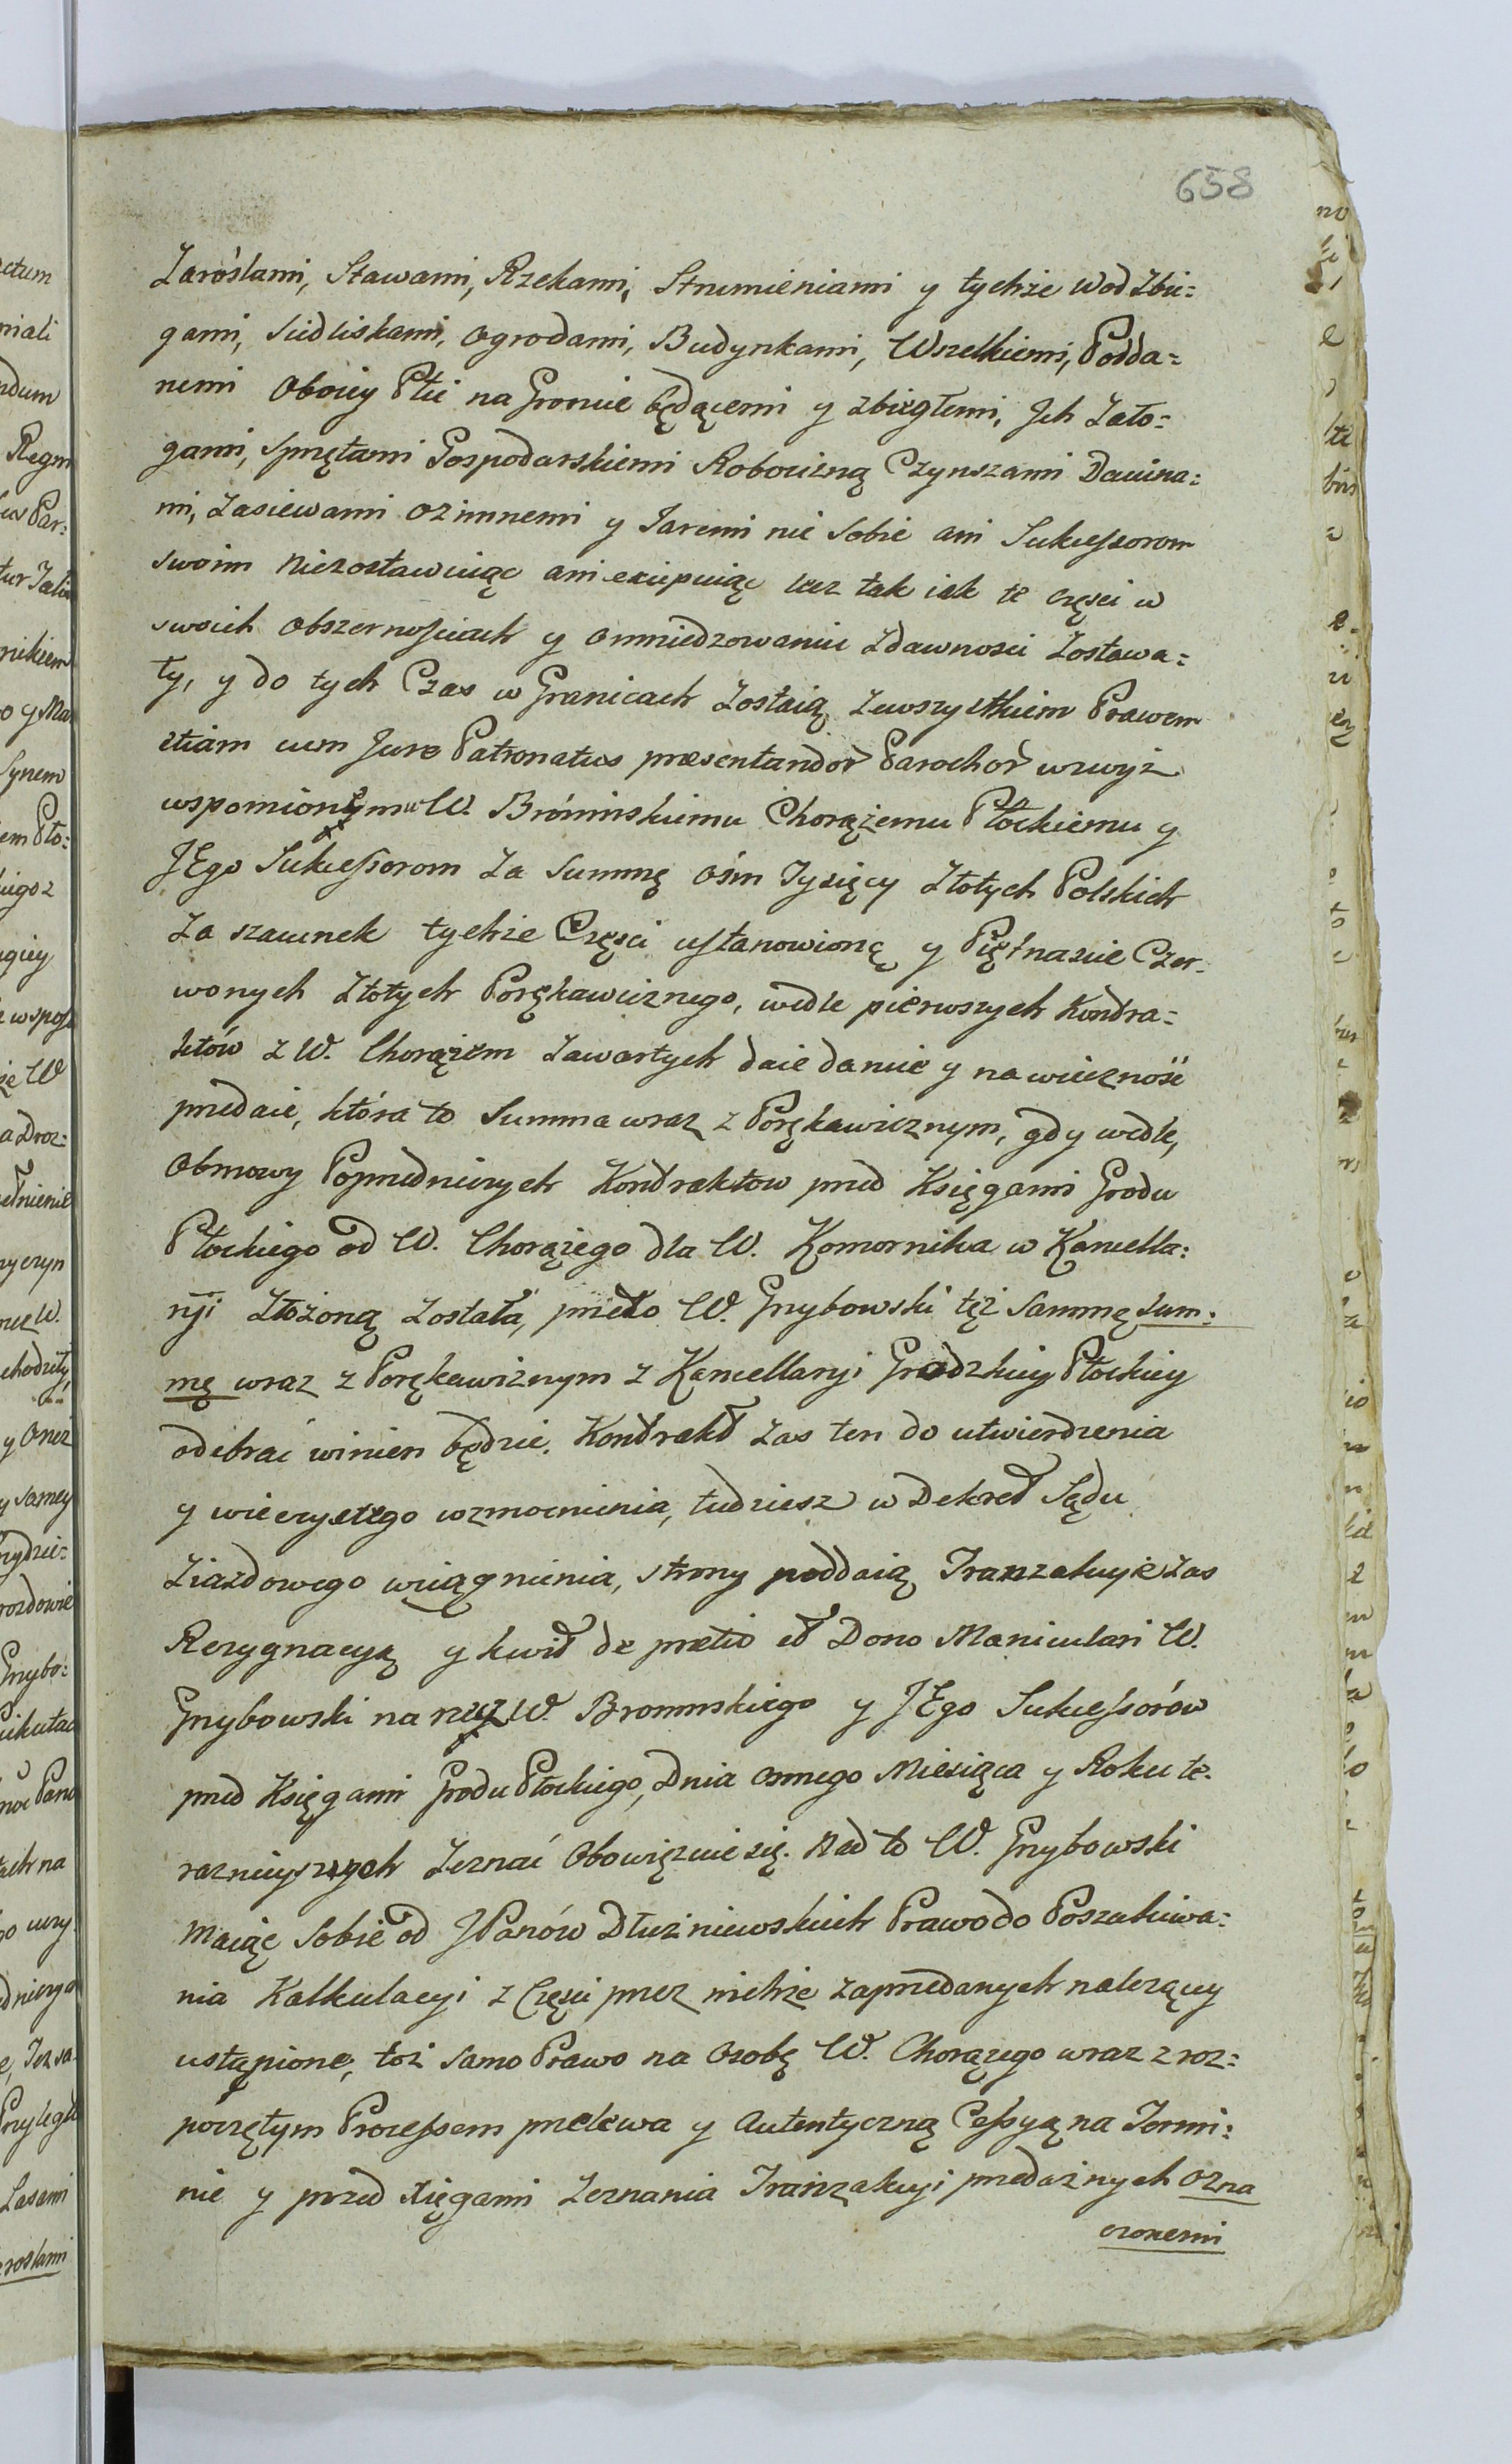 658
Zaroślami, Stawami, Rzekami, Strumieniami y tychże wod Zbie=
gami, Siedliskami, ogrodami, Budynkami, Wszelkiemi, Podda=
nemi Oboiey Płci na Groncie będącemi y zbiegłemi, Jch Zało=
gami, Sprzętami Gospodarskiemi Robocizną Czynszami Danina=
mi, Zasiewami Ozimnemi y Jaremi nic Sobie ani Sukcessorom
swoim niezostawuiąc ani excypuiąc lecz tak iak te części w
swoich Obszernościach y Omniedzowaniu Zdawności Zostawa=
ły, y do tych Czas w Granicach Zostaią Zewszystkiem Prawem
etiam cum Jure Patronatus præsentandor Parochor wzwyż
wspomionymu W. Bromińskiemu Chorążemu Płockiemu y
JEgo Sukcessorom Za Summę Ośm Tysięcy Złotych Polskich
Za szacunek tychże Części ustanowioną y Piętnaście Czer=
wonych Złotych Porękawicznego, wedle pierwszych Kontra=
któw z W. Chorążem Zawartych daie daruie y na wieczność
przedaie, która to Summa wraz z Porękawicznym, gdy wedle,
Obmowy Poprzedniczych Kontraktow przed Księgami Grodu
Płockiego od W. Chorążego dla W. Komornika w Kancella=
ryi Złożoną Została, przeto W. Grzybowski tęż Sammę Sum=
mę wraz z Porękawicznym z Kancellaryi Grodzkiey Płockiey
odebrać winien będzie. Kontrakt Zas ten do utwierdzenia
y wieczystego wzmocnienia, tudziesz w Dekret Sądu
Ziazdowego wciągnienia, strony poddaią Tranzakcyie Zas
Rezygnacyą y kwit de pretio et Dono Maniculari W.
Grzybowski na rzecz W. Brominskiego y JEgo Sukcessorów
przed Księgami Grodu Płockiego, Dnia Osmego Miesiąca y Roku te=
raznieyszych Zeznać Obowięzuie się. Nad to W. Grzybowski
Maiąc Sobie od JPanów Dłużniewskich Prawo do Poszukiwa=
nia Kalkulacyi z Części przez nichże zaprzedanych należący
ustąpione, toż samo Prawo na Osobę W. Chorążego wraz z roz=
poczętym Processem przelewa y Autentyczną Cessyą na Termi=
nie y przed Xięgami Zeznania Tranzakcyi przedażnych Ozna
czonemi